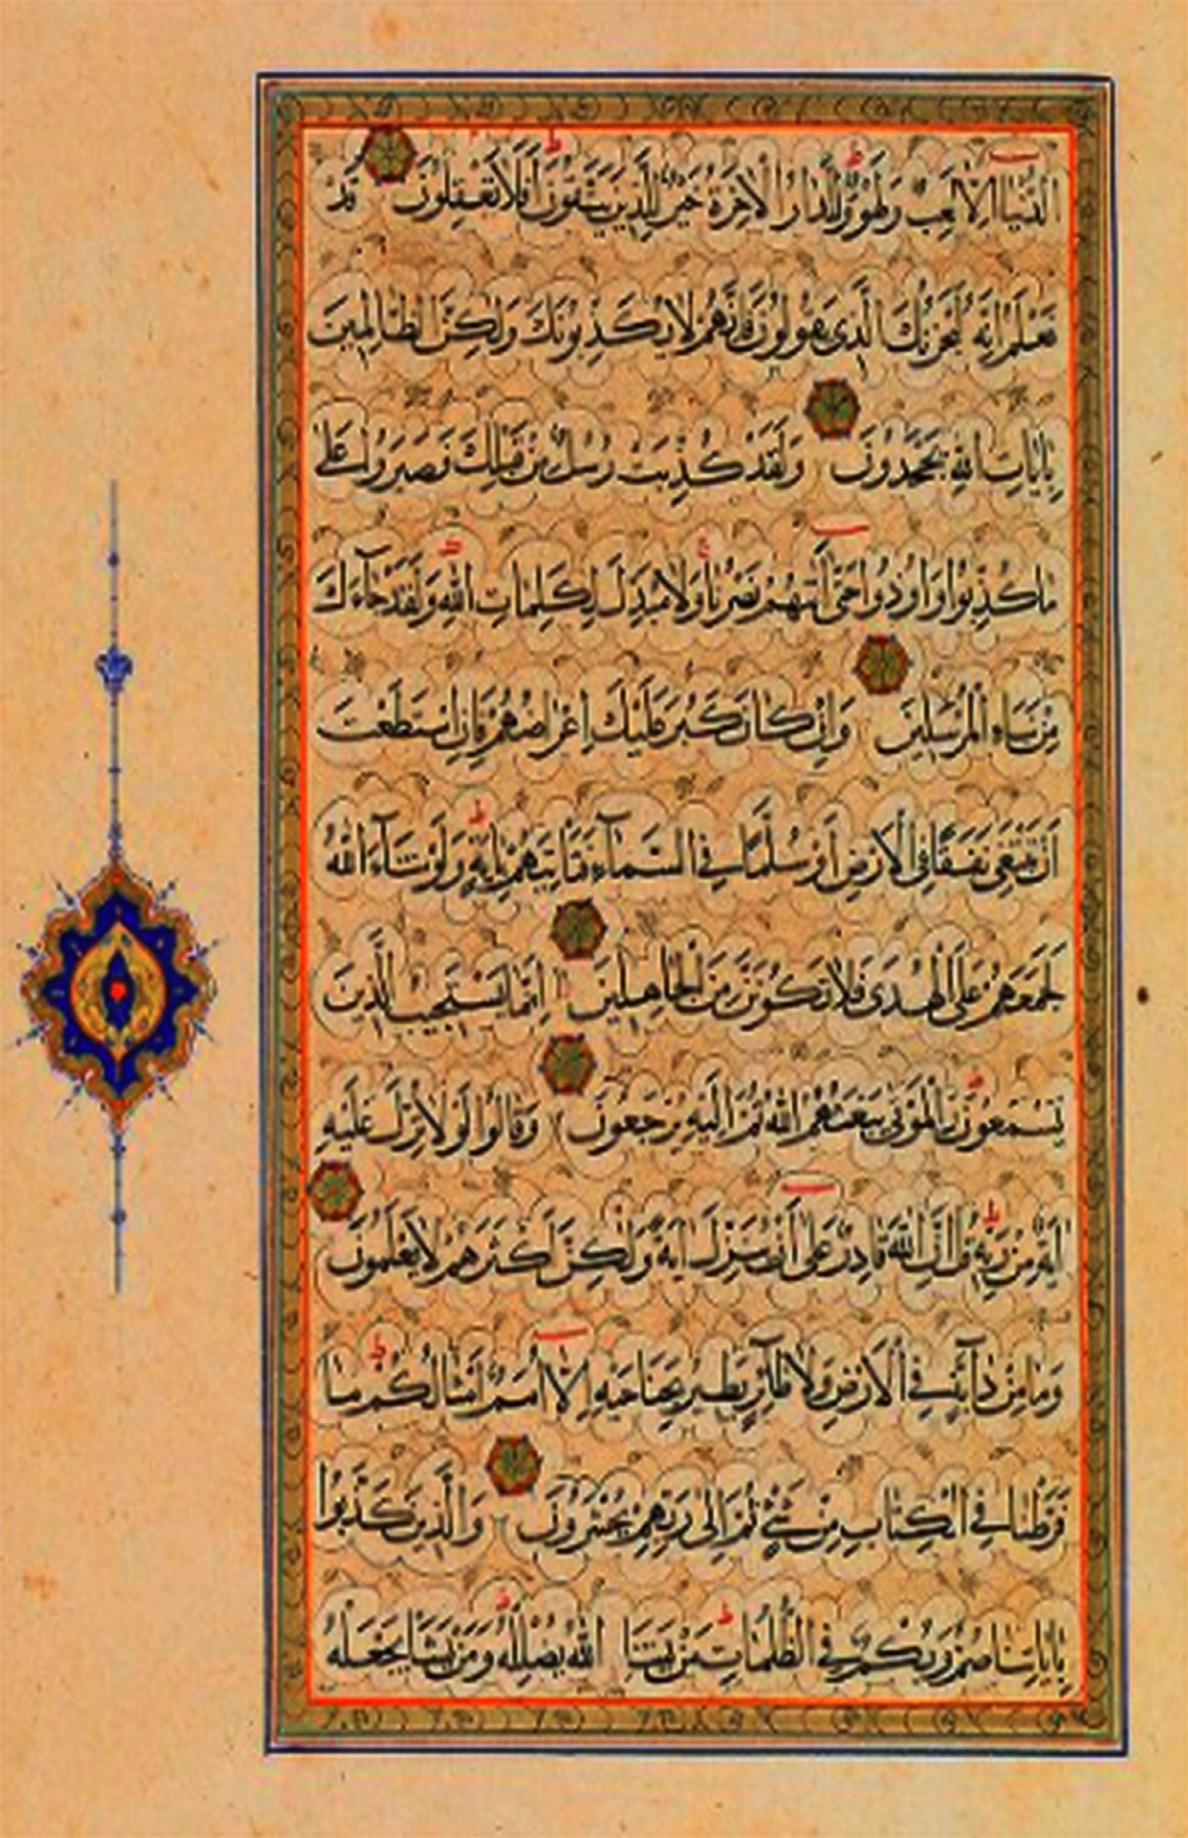 الدُّنْيَا اِلَّا لَعِبٌ وَلَهْوٌ وَلَلدَّارُ الْاٰخِرَةُ خَيْرٌ لِلَّذِينَ يَتَّقُونَ اَفَلَا تَعْقِلُونَ قَدْ
نَعْلَمُ اِنَّهُ لَيَحْزُنُكَ الَّذِى يَقُولُونَ فَاِنَّهُمْ لَا يُكَذِّبُونَكَ وَلٰكِنَّ الظَّالِمِينَ
بِاٰيَاتِ اللهِ يَجْحَدُونَ وَلَقَدْ كُذِّبَتْ رُسُلٌ مِنْ قَبْلِكَ فَصَبَرُوا عَلٰى
مَا كُذِّبُوا وَاُوذُوا حَتّٰى اَتٰيهُمْ نَصْرُنَا وَلَا مُبَدِّلَ لِكَلِمَاتِ اللهِ وَلَقَدْ جَآءَكَ
مِنْ نَبَاءِ الْمُرْسَلِينَ وَاِنْ كَانَ كَبُرَ عَلَيْكَ اِعْرَاضُهُمْ فَاِنِ اسْتَطَعْتَ
اَنْ تَبْتَغِىَ نَفَقًا فِى الْاَرْضِ اَوْ سُلَّمًا فِى السَّمَآءِ فَتَاْتِيَهُمْ بِاٰيَةٍ وَلَوْ شَآءَ اللهُ
لَجَمَعَهُمْ عَلَى الْهُدٰى فَلَا تَكُونَنَّ مِنَ الْجَاهِلِينَ اِنَّمَا يَسْتَجِيبُ الَّذِينَ
يَسْمَعُونَ وَالْمَوْتٰى يَبْعَثُهُمُ اللهُ ثُمَّ اِلَيْهِ يُرْجَعُونَ وَقَالُوا لَوْلَا نُزِّلَ عَلَيْهِ
اٰيَةٌ مِنْ رَبِّهِ قُلْ اِنَّ اللهَ قَادِرٌ عَلٰى اَنْ يُنَزِّلَ اٰيَةً وَلٰكِنَّ اَكْثَرَهُمْ لَا يَعْلَمُونَ
وَمَا مِنْ دَآبَّةٍ فِى الْاَرْضِ وَلَا طَآئِرٍ يَطِيرُ بِجَنَاحَيْهِ اِلَّا اُمَمٌ اَمْثَالُكُمْ مَا
فَرَّطْنَا فِى الْكِتَابِ مِنْ شَىْءٍ ثُمَّ اِلٰى رَبِّهِمْ يُحْشَرُونَ وَالَّذِينَ كَذَّبُوا
بِاٰيَاتِنَا صُمٌّ وَبُكْمٌ فِى الظُّلُمَاتِ مَنْ يَشَا اللهُ يُضْلِلْهُ وَمَنْ يَشَا يَجْعَلْهُ